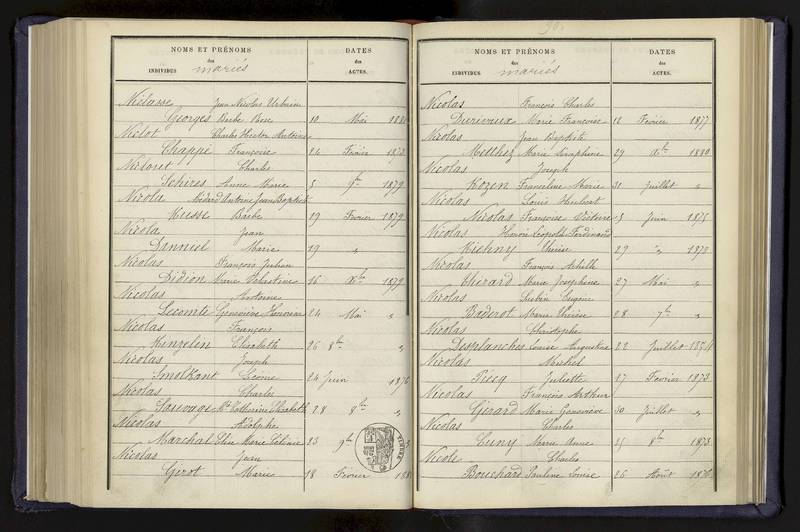 NOMS ET PRÉNOMS
des
INDIVIDUS mariés
DATES
des
ACTES.
Niclasse Jean Nicolas Urbain
Georges Barbe Rose 10 Mai
Niclot Charles Hector Antoine
Chappé Françoise 24 Février 1873
Nicloret Charles
Schires Anne Marie 5 9bre 1879
Nicola Médard Antoine Jean Baptiste
Kuesse Barbe 19 Février 1879
Nicola Jean
Danniel Marie 19 "
Nicolas François Julien
Didion Marie Célestine 16 Xbre 1879
Nicolas Antoine
Lecomte Geneviève Honorine 24 Mai "
Nicolas François
Kinzelin Elisabeth 26 8bre "
Nicolas Joseph
Smolkant Léonie 24 Juin 1876
Nicolas Charles
Sauvage Mie Catherine Elisabeth 28 8bre "
Nicolas Adolphe
Marchal Marie Céline 23 9bre
Nicolas Jean
Girot Marie 18 Février 188
30.
NOMS ET PRÉNOMS
des
INDIVIDUS mariés
DATES
des
ACTES.
Nicolas François Charles
Durivaux Marie Françoise 12 Février 1877
Nicolas Jean Baptiste
Melchez Marie Séraphine 29 Xbre 1880
Nicolas Joseph
Kozen Franceline Marie 31 Juillet "
Nicolas Louis Hubert
Nicolas Françoise Victoire 3 Juin 1875
Nicolas Henri Léopold Ferdinand
Kichny Thérèse 29 " 1873
Nicolas François Achille
Khirard Marie Joséphine 27 Mai "
Nicolas Lubin Eugène
Baderot Marie Thérèse 28 7bre "
Nicolas Christophe
Desplanches Louise Augustine 22 Juillet 1874
Nicolas Michel
Piesq Juliette 27 Février 1873
Nicolas François Arthur
Gérard Marie Geneviève 30 Juillet "
Nicolas Charles
Cuny Marie Anne 25 8bre 1873
Nicole Charles
Bouchard Pauline Louise 26 Août 1876